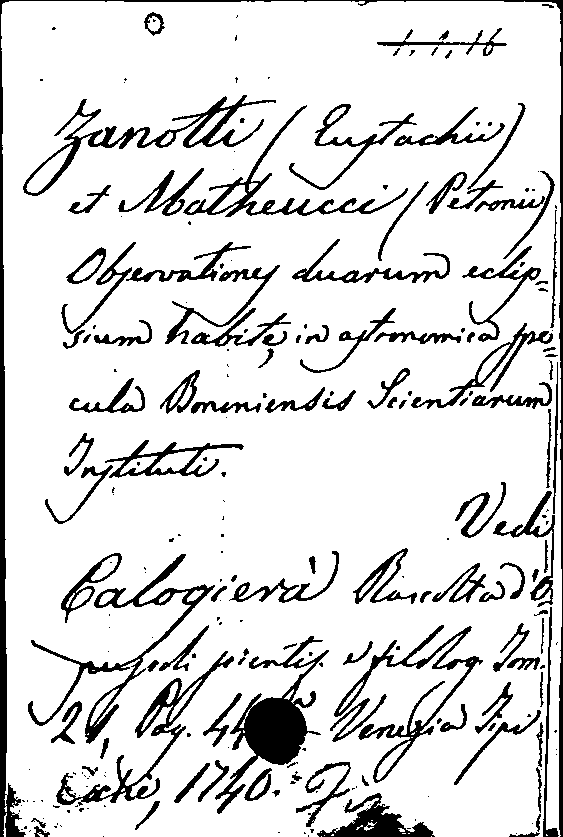 1.1.16
Zanotti (Eustachii)
et Matheucci (Petronii)
Observationes duarum eclip=
sium habitę in astronomica spe=
cula Bononiensis Scientiarum
Instituti.
Vedi
Calogierà Raccolta d'O
puscoli scientif. e filolog. Tom.
21, Pag. 44 Venezia Tipi
1740.